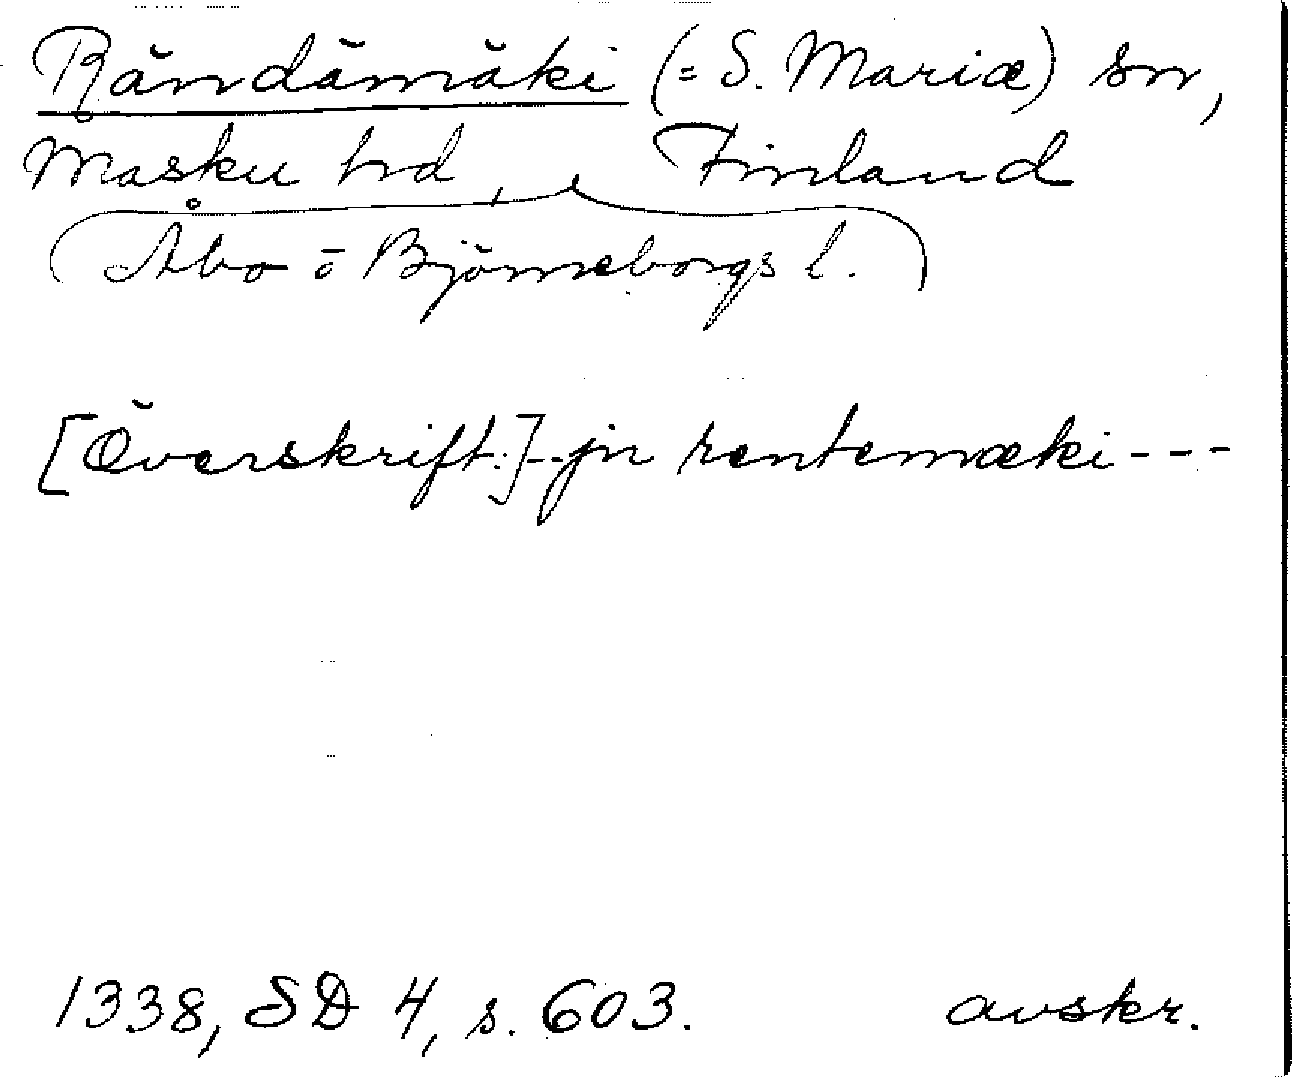 Rändämäki (= S. Mariæ) sn,
Masku hd, Finland
(Åbo o Björneborgs l.)
[Överskrift:]--jn rentemæki---
1338, SD 4, s. 603. avskr.